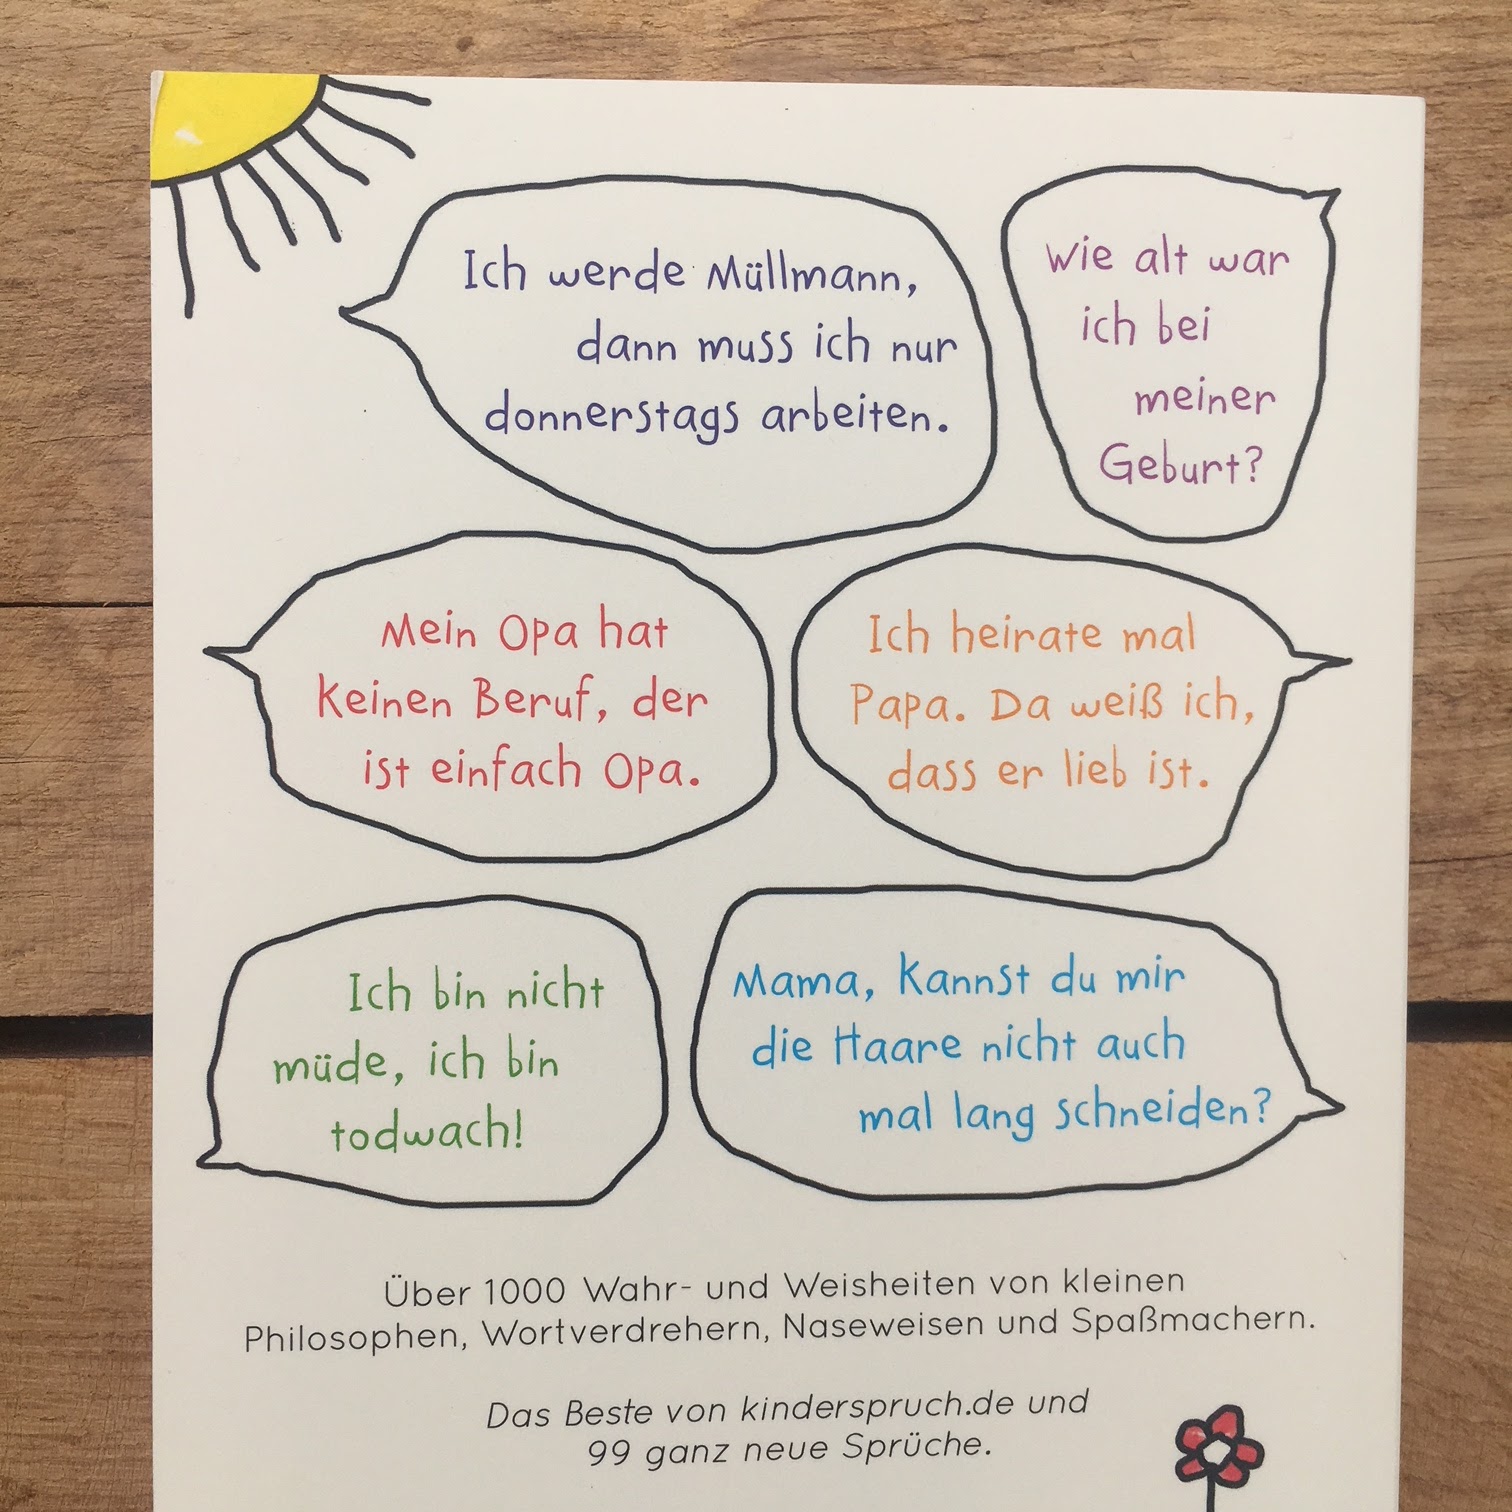 Ich werde Müllmann,
dann muss ich nur
donnerstags arbeiten.
Wie alt war
ich bei
meiner
Geburt?
Mein Opa hat
keinen Beruf, der
ist einfach Opa.
Ich heirate mal
Papa. Da weiß ich,
dass er lieb ist.
Ich bin nicht
müde, ich bin
todwach!
Mama, kannst du mir
die Haare nicht auch
mal lang schneiden?
Über 1000 Wahr- und Weisheiten von kleinen
Philosophen, Wortverdrehern, Naseweisen und Spaßmachern.
Das Beste von kinderspruch.de und
99 ganz neue Sprüche.